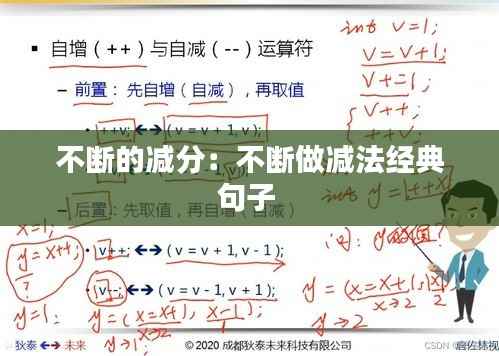 ▪ 自增（++）与自减（--）运算符
– 前置：先自增（自减），再取值
• ++v; ↔ (v = v + 1, v);
不断的减分：不断做减法经典
句子
– 后置：先取值，再自增（自减）
• v++; ↔ (v = v + 1, v - 1);
• v--; ↔ (v = v - 1, v + 1);
int v=1;
v = v+1;
v+=1;
v++;
++v;
int y =
x=1;
y=x++;
?
y=1;
y=(x=x+1, x-1);
→1;
问:
y=(x=x+1, x)
x→2
y→2
狄泰 ↔ 未来
© 2020 成都狄泰未来科技有限公司
CSDN
启佐林放